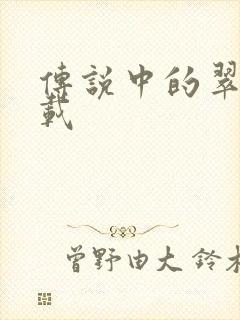 傳說中的翠
載
曾野由大 鈴木